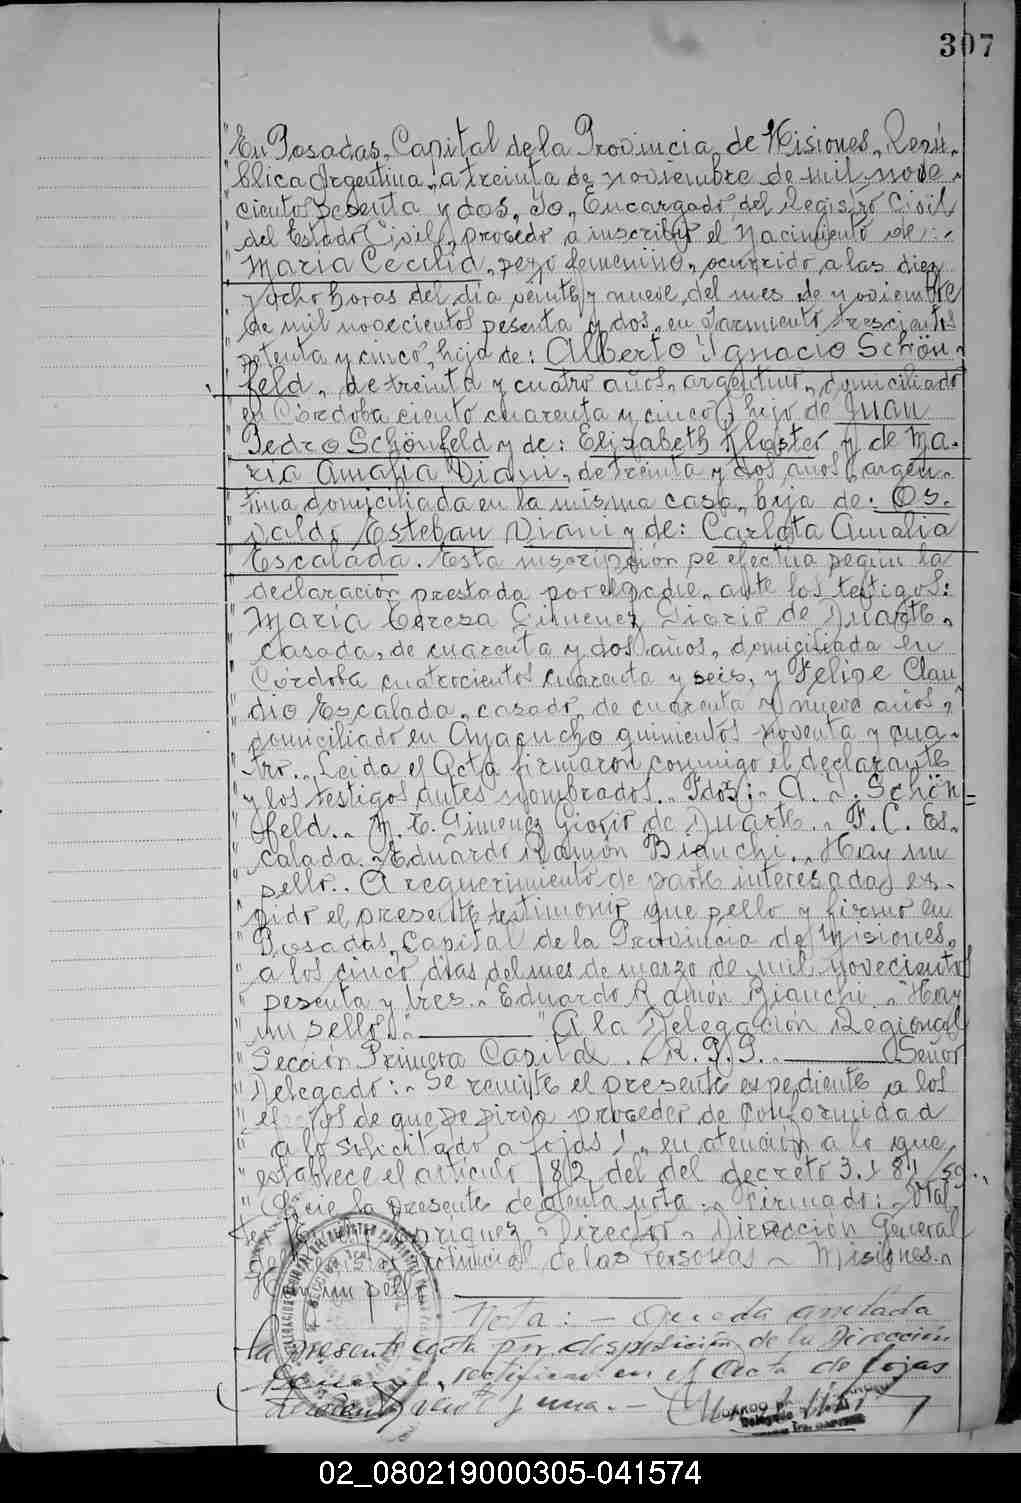 307
"En Posadas, Capital de la Provincia de Misiones, Repú-
"blica Argentina, a treinta de noviembre de mil nove-
"cientos sesenta y dos, Yo, Encargado del Registro Civil
"del Estado Civil, procedo a inscribir el Nacimiento de:
"María Cecilia, sexo femenino, ocurrido a las diez
"y ocho horas del día veinte y nueve del mes de noviembre
"de mil novecientos sesenta y dos, en Sarmiento trescientos
"setenta y cinco, hija de: Alberto Ignacio Schön-
"feld, de treinta y cuatro años, argentino, domiciliado
"en Córdoba ciento cuarenta y cinco, hijo de Juan
"Pedro Schönfeld y de: Elizabeth Kloster y de Ma-
"ría Amalia Viani, de treinta y dos años, argen-
"tina domiciliada en la misma casa, hija de: Os-
"valdo Esteban Viani y de: Carlota Amalia
"Escalada. Esta inscripción se efectúa según la
"declaración prestada por el padre, ante los testigos:
"María Teresa Gimenez Giorio de Duarte,
"casada, de cuarenta y dos años, domiciliada en
"Córdoba cuatrocientos cuarenta y seis, y Felipe Clau
"dio Escalada, casado, de cuarenta y nueve años,
"domiciliado en Ayacucho quinientos noventa y cua-
"tro. Leida el Acta firmaron conmigo el declarante
"y los testigos antes nombrados. Fdos: A. Schön=
"feld. M. T. Gimenez Giorio de Duarte. F. C. Es-
"calada. Eduardo Ramón Bianchi. Hay un
"sello. A requerimiento de parte interesada, ex-
"pido el presente testimonio que sello y firmo en
"Posadas, Capital de la Provincia de Misiones,
"a los cinco días del mes de marzo de mil novecientos
"sesenta y tres. Eduardo Ramón Bianchi. "Hay
"un sello". "A la Delegación Regional
"Sección Primera Capital. Señor
"Delegado: Se remite el presente expediente a los
"efectos de que se sirva proceder de conformidad
"a lo solicitado a fojas 1, en atención a lo que
"establece el artículo 182 del del decreto
"la presente de atenta nota. Firmado:
Director Dirección General
Provincial de las Personas Misiones.
Hay un sello
Nota: - Queda anulada
la presente acta por disposición de la Dirección
General, rectificada en el Acta de fojas
veinte y una. -
02_080219000305-041574